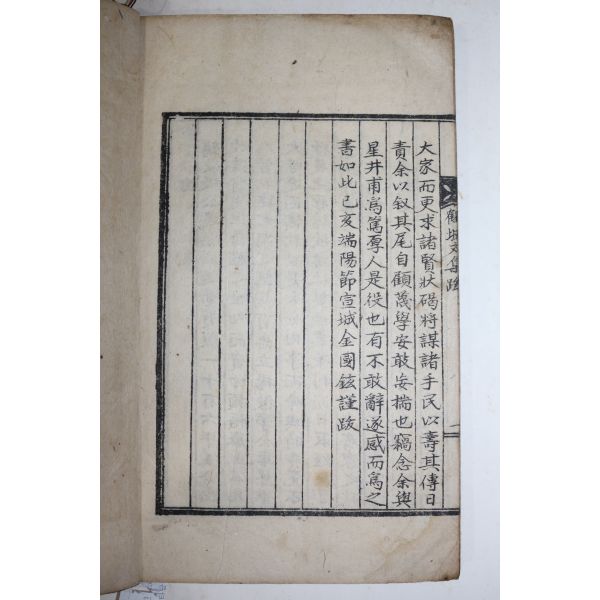 大家而更求諸賢狀碣將謀諸手民以壽其傳日
責余以叙其尾自顧蔑學安敢妄揣也竊念余與
星井甫爲篤厚人是役也有不敢辭遂感而爲之
書如此己亥端陽節宣城金國鉉謹跋
文集跋